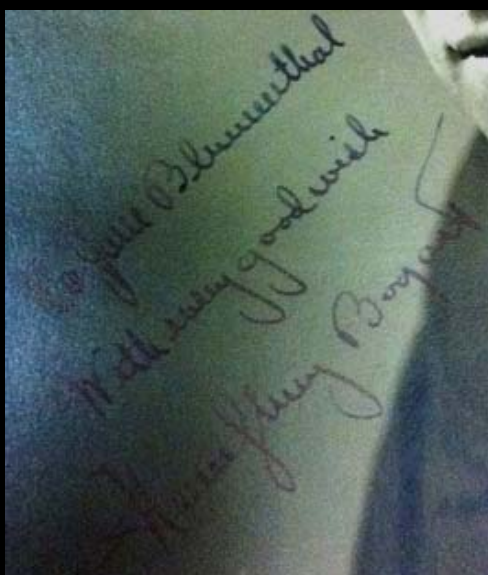 To June Blumenthal
With every good wish
Humphrey Bogart